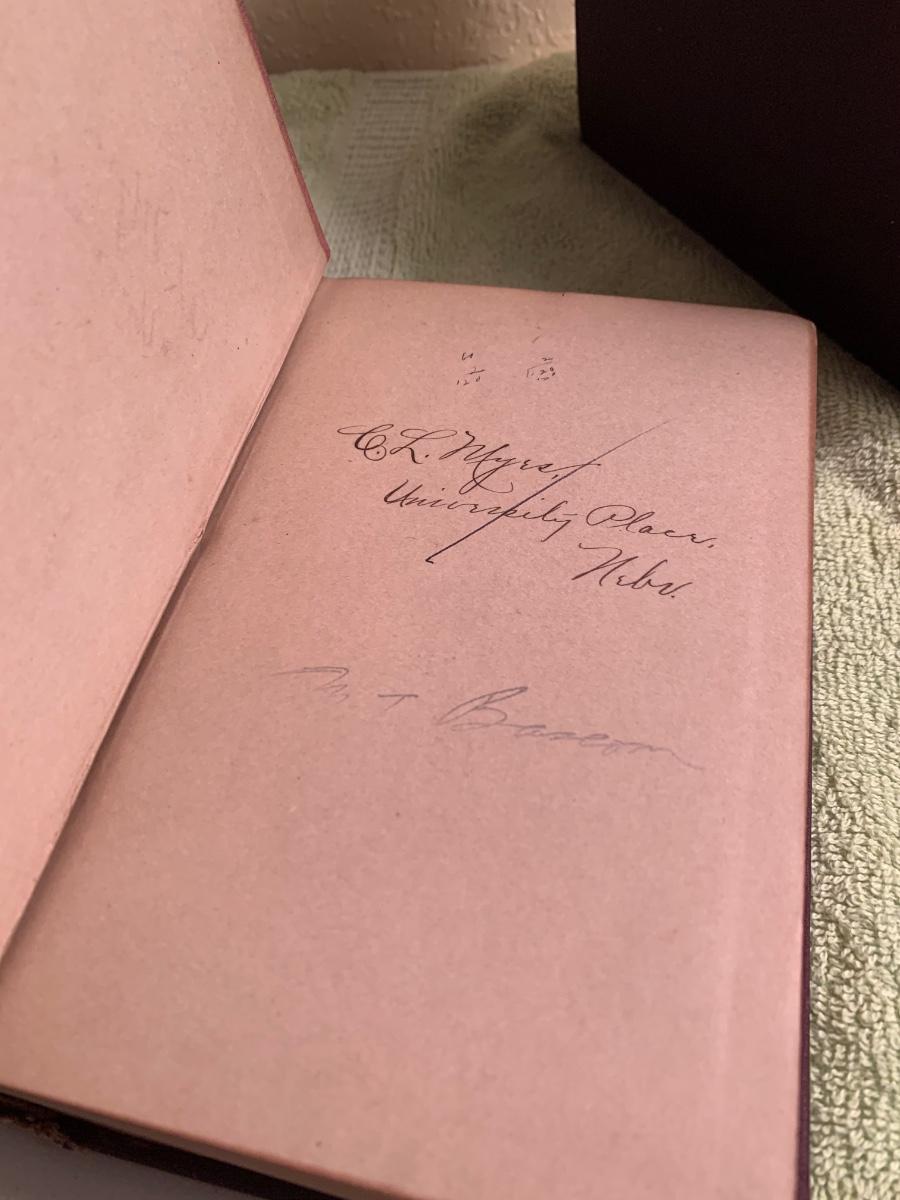 120 120
C. L. Myers,
University Place,
Nebr.
M T Bascom